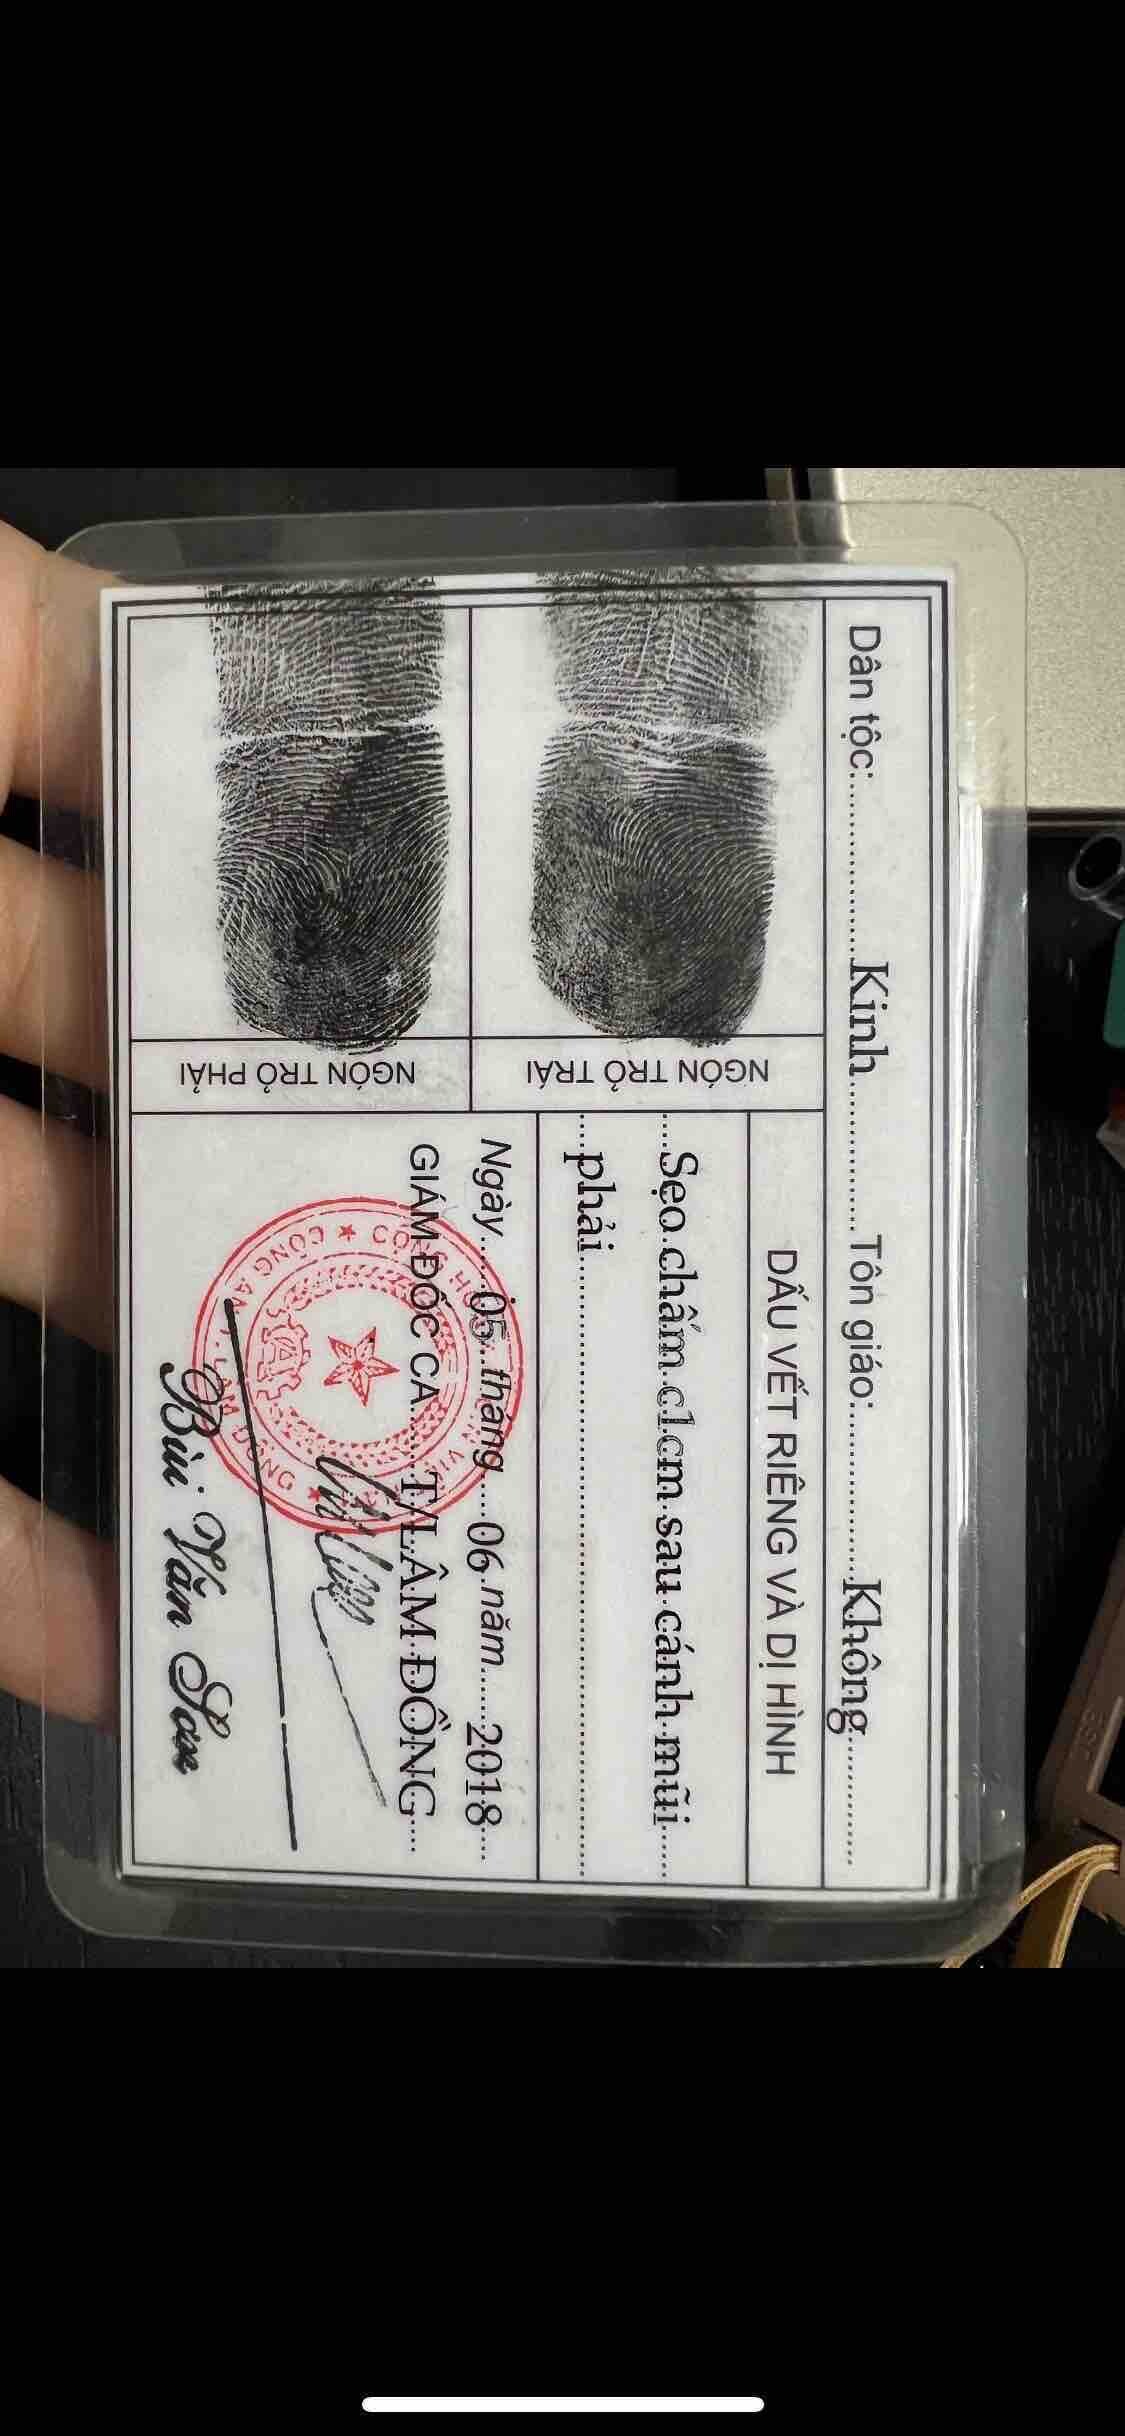 Dân tộc:..........Kinh..........Tôn giáo:..........Không..........
NGÓN TRỎ TRÁI
DẤU VẾT RIÊNG VÀ DỊ HÌNH
Sẹo chấm c1cm sau cánh mũi
phải
NGÓN TRỎ PHẢI
Ngày....05..tháng....06.năm......2018...
GIÁM ĐỐC CA.......T/LÂM ĐỒNG....
Bùi Văn Sơn